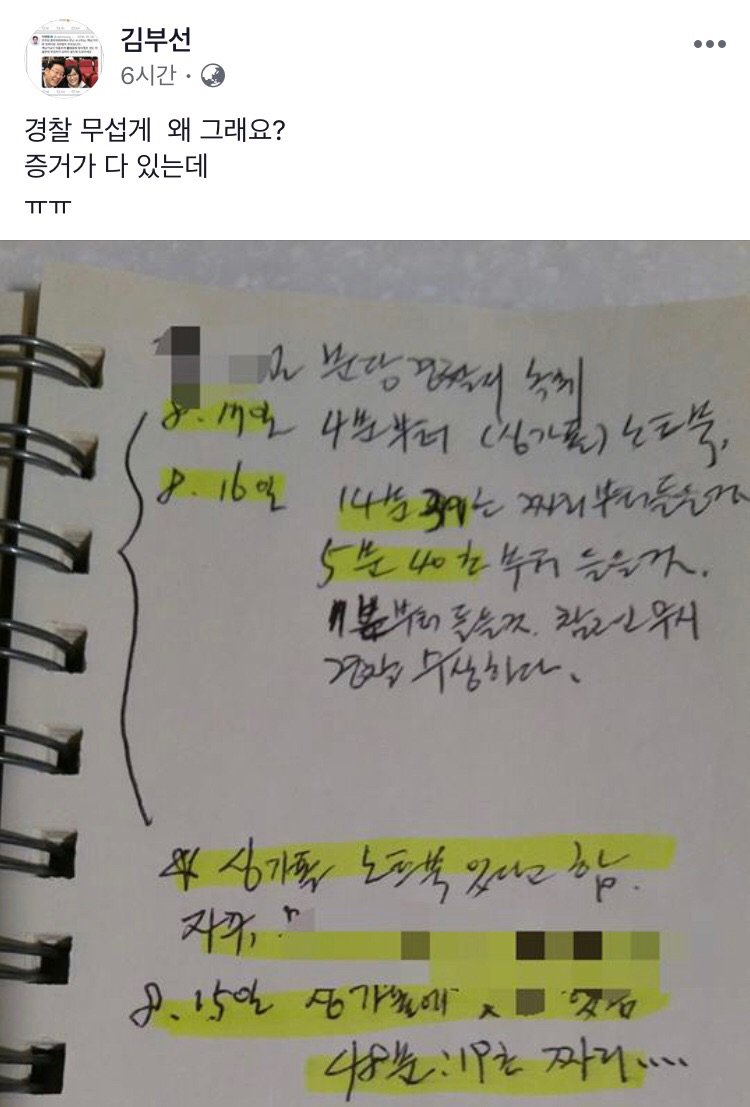 김부선
6시간 ·
경찰 무섭게 왜 그래요?
증거가 다 있는데
ㅠㅠ
분당경찰서 녹취
8. 17일 4분부터 (싱가폴) 노트북,
8. 16일 14분 짜리부터들을것
5분 40초 부터 들을것.
부터 들을것. 참고인 무시
경찰 수상하다.
싱가폴 노트북 있다고 함.
자꾸,
8. 15일 싱가폴에 있음
48분:19초 짜리....